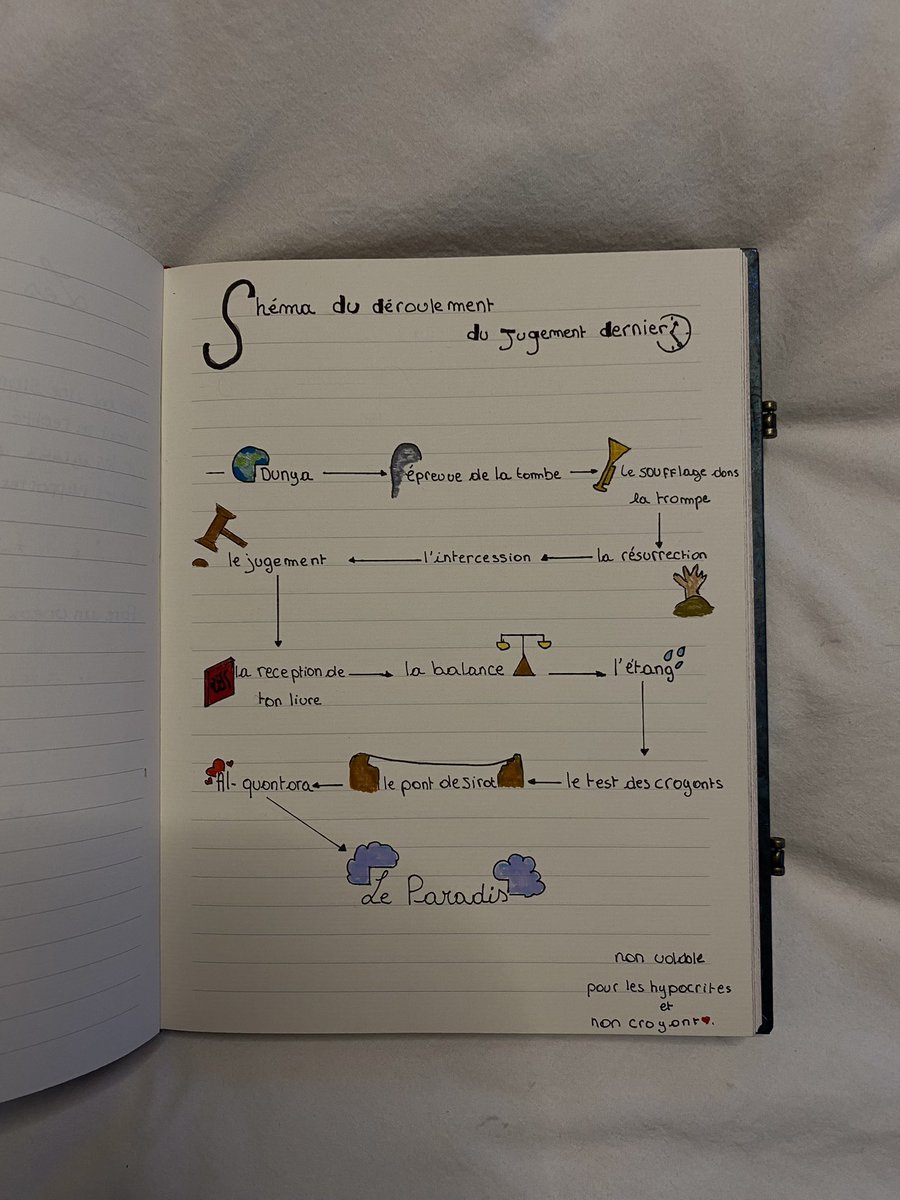 Shéma du déroulement
du Jugement dernier
Dunya
épreuve de la tombe
le soufflage dans
la trompe
la résurrection
l'intercession
le jugement
la reception de
ton livre
la balance
l'étang
le test des croyants
le pont de sirat
Al-quantara
Le Paradis
non valable
pour les hypocrites
et
non croyant